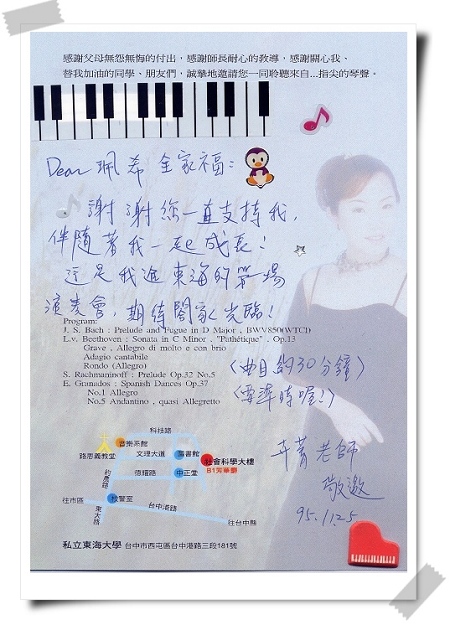 感謝父母無怨無悔的付出，感謝師長耐心的教導，感謝關心我、
替我加油的同學、朋友們，誠摯地邀請您一同聆聽來自...指尖的琴聲。
Dear 珮希全家福：
謝謝您一直支持我，
伴隨著我一起成長！
這是我進東海的第一場
演奏會，期待闔家光臨！
Program:
J. S. Bach : Prelude and Fugue in D Major , BWV850(WTCI)
L.v. Beethoven : Sonata in C Minor , "Pathétique" , Op.13
Grave , Allegro di molto e con brio
Adagio cantabile
Rondo (Allegro)
S. Rachmaninoff : Prelude Op.32 No.5
E. Granados : Spanish Dances Op.37
No.1 Allegro
No.5 Andantino , quasi Allegretto
〈曲目約30分鐘〉
〈要準時喔！〉
科技路
音樂系館
路思義教堂
文理大道
圖書館
社會科學大樓
B1茂華廳
約農路
德耀路
中正堂
校警室
往市區
東大路
台中港路
往台中縣
老師
敬邀
95.1125
私立東海大學 台中市西屯區台中港路三段181號